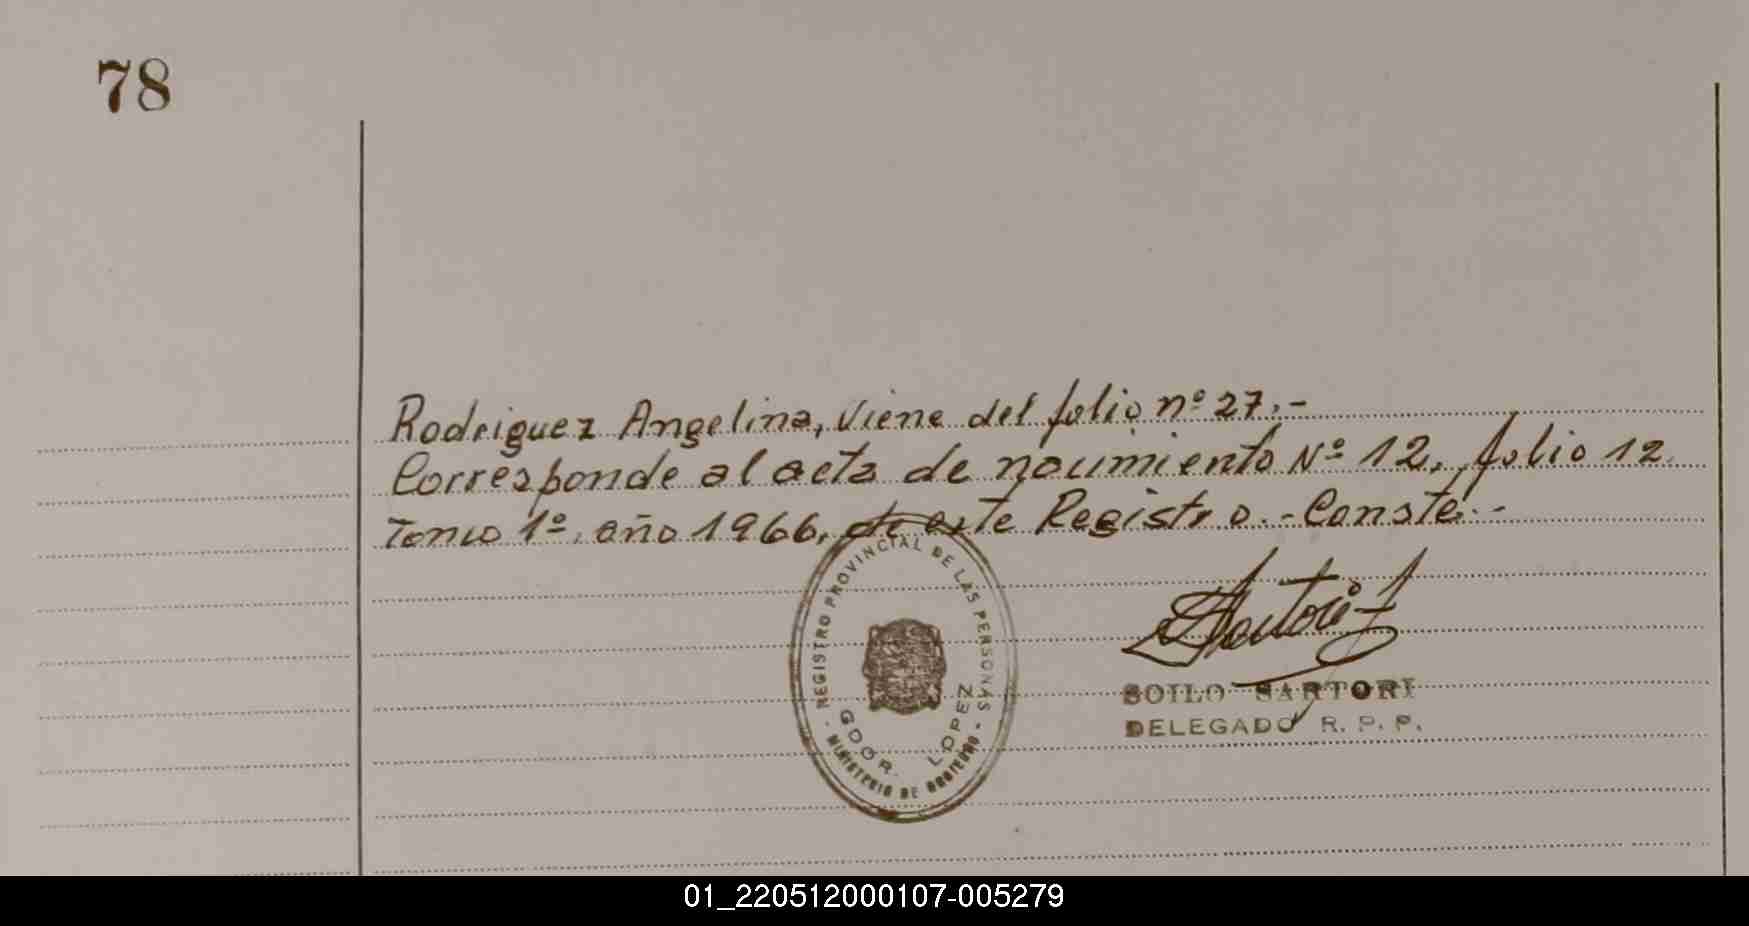 78
Rodriguez Angelina, viene del folio nº 27.-
Corresponde al acta de nacimiento Nº 12, folio 12
Tomo 1º, año 1966, de este Registro.- Conste.-
REGISTRO PROVINCIAL DE LAS PERSONAS
- MINISTERIO DE GOBIERNO -
GDOR. LOPEZ
SOILO SARTORI
DELEGADO R. P. P.
01_220512000107-005279